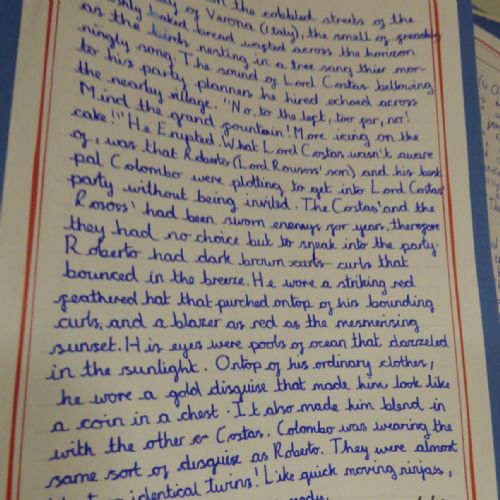 on the cobbled streets of the
of Verona (Italy), the smell of freshly
baked bread wafted across the horizon
as the birds nesting in a tree sang thier mor-
ningly song. The sound of Lord Costas bellowing
to his party planners he hired echoed across
the nearby village. "No, to the left, too far, no!
Mind the grand fountain! More icing on the
cake!" He Erupted. What Lord Costas wasn't aware
of, was that Roberto (Lord 's son) and his best
pal Colombo were plotting to get into Lord Costas'
party without being invited. The Costas' and the
had been sworn enemys for years, therefore
they had no choice but to sneak into the party.
Roberto had dark brown curls curls that
bounced in the breeze. He wore a striking red
feathered hat that purched ontop of his bounding
curls, and a blazer as red as the mesmerising
sunset. His eyes were pools of ocean that dazzeled
in the sunlight. Ontop of his ordinary clothes,
he wore a gold disguise that made him look like
a coin in a chest. It also made him blend in
with the other Costas. Colombo was wearing the
same sort of disguise as Roberto. They were almost
identical Twins! Like quick moving ninjas,